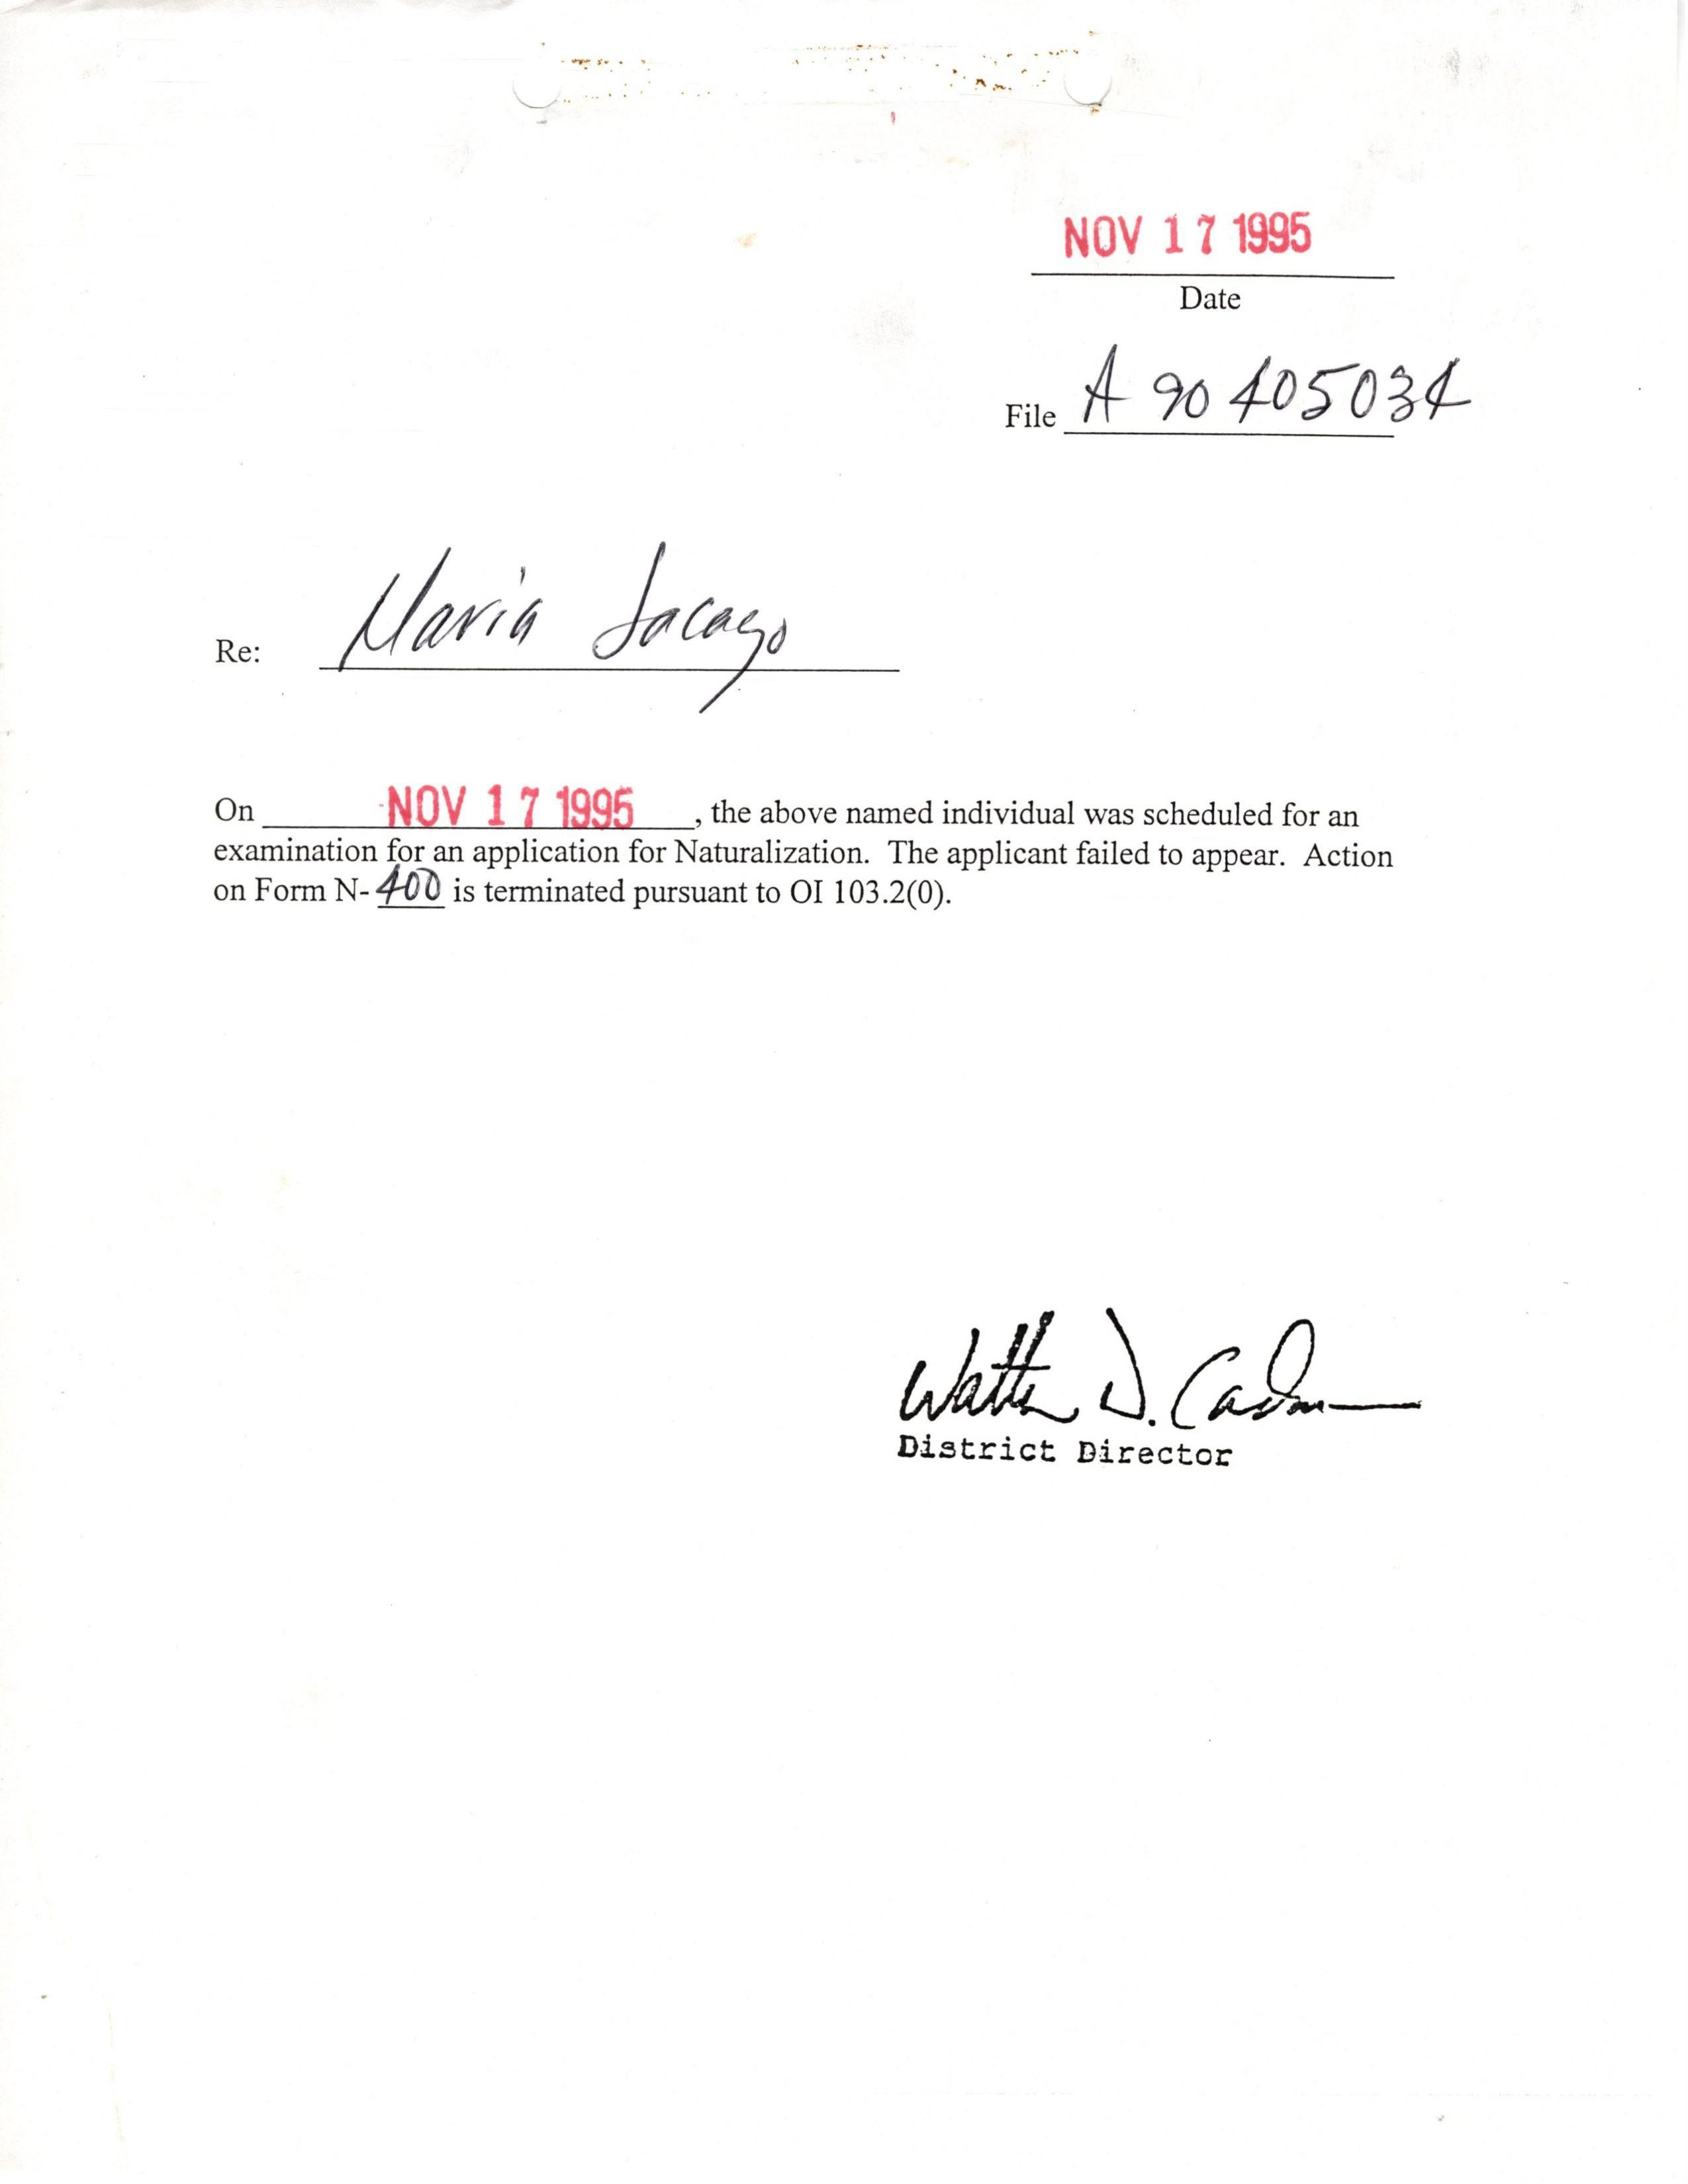 NOV 17 1995
Date
File A 90 405034
Re: Maria
On NOV 17 1995, the above named individual was scheduled for an
examination for an application for Naturalization. The applicant failed to appear. Action
on Form N-400 is terminated pursuant to OI 103.2(0).
D.
District Director